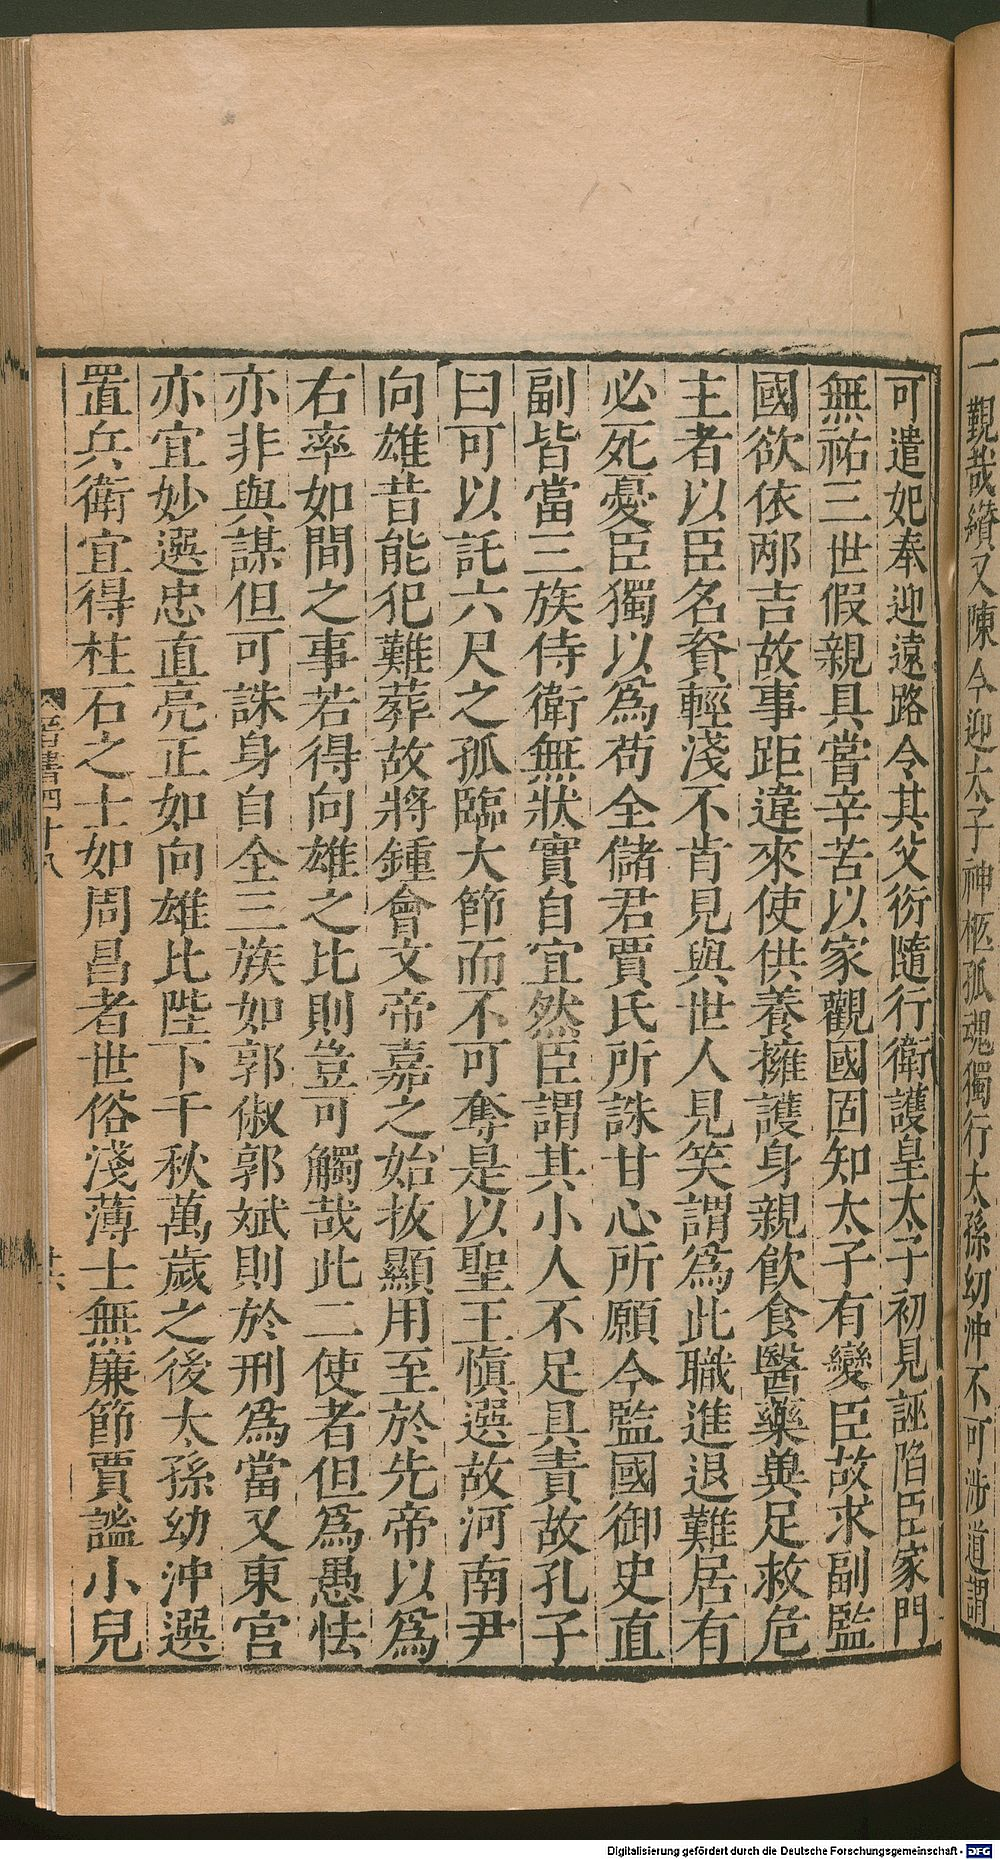 一觀哉纘又陳今迎太子神柩孤魂獨行太孫幼沖不可涉道謂
可遣妃奉迎遠路令其父衍隨行衛護皇太子初見誣陷臣家門
無祐三世假親具嘗辛苦以家觀國固知太子有變臣故求副監
國欲依邴吉故事距違來使供養擁護身親飮食醫藥兾足救危
主者以臣名資輕淺不肯見與世人見笑謂爲此職進退難居有
必死憂臣獨以爲苟全儲君賈氏所誅甘心所願今監國御史直
副皆當三族侍衛無狀實自宜然臣謂其小人不足具責故孔子
曰可以託六尺之孤臨大節而不可奪是以聖王愼選故河南尹
向雄昔能犯難葬故將鍾會文帝嘉之始拔顯用至於先帝以爲
右率如間之事若得向雄之比則豈可觸哉此二使者但爲愚怯
亦非與謀但可誅身自全三族如郭俶郭斌則於刑爲當又東宮
亦宜妙選忠直亮正如向雄比陛下千秋萬歲之後太孫幼沖選
置兵衛宜得柱石之士如周昌者世俗淺薄士無廉節賈謐小兒
晉書四十八
廿六
Digitalisierung gefördert durch die Deutsche Forschungsgemeinschaft - DFG